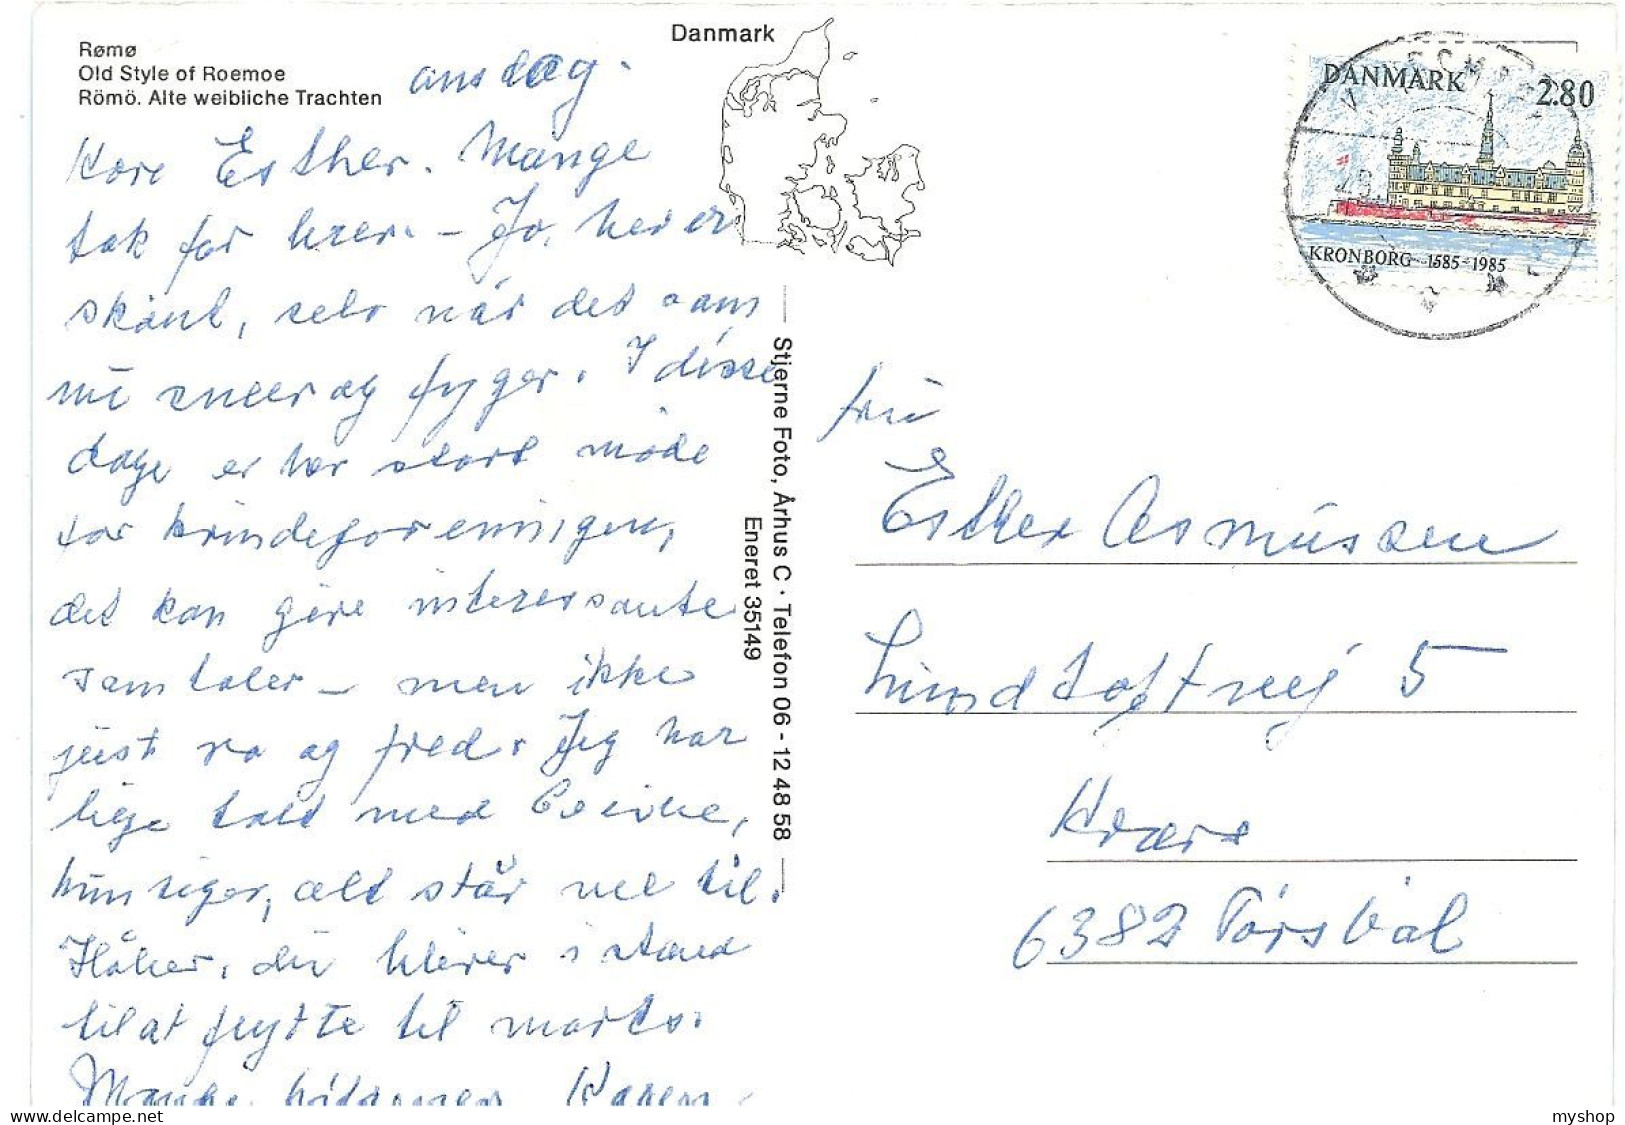 Rømø
Old Style of Roemoe
Römö. Alte weibliche Trachten
Danmark
onsdag.
Kære Esther. Mange
tak for brev. - Jo, her er
skønt, selv når det som
nu sneer og fyger. I disse
dage er her stort møde
for kvindeforeningen,
det kan give interessante
samtaler - men ikke
just ro og fred. Jeg har
lige talt med
hun siger, alt står vel til.
Håber, du bliver i stand
til at flytte til marts.
Mange hilsener Karen
Stjerne Foto, Århus C · Telefon 06 - 12 48 58
Eneret 35149
DANMARK 2.80
KRONBORG 1585-1985
fru
Esther Asmussen
Lundtoftvej 5
Kværs
6382 Tørsbøl
myshop